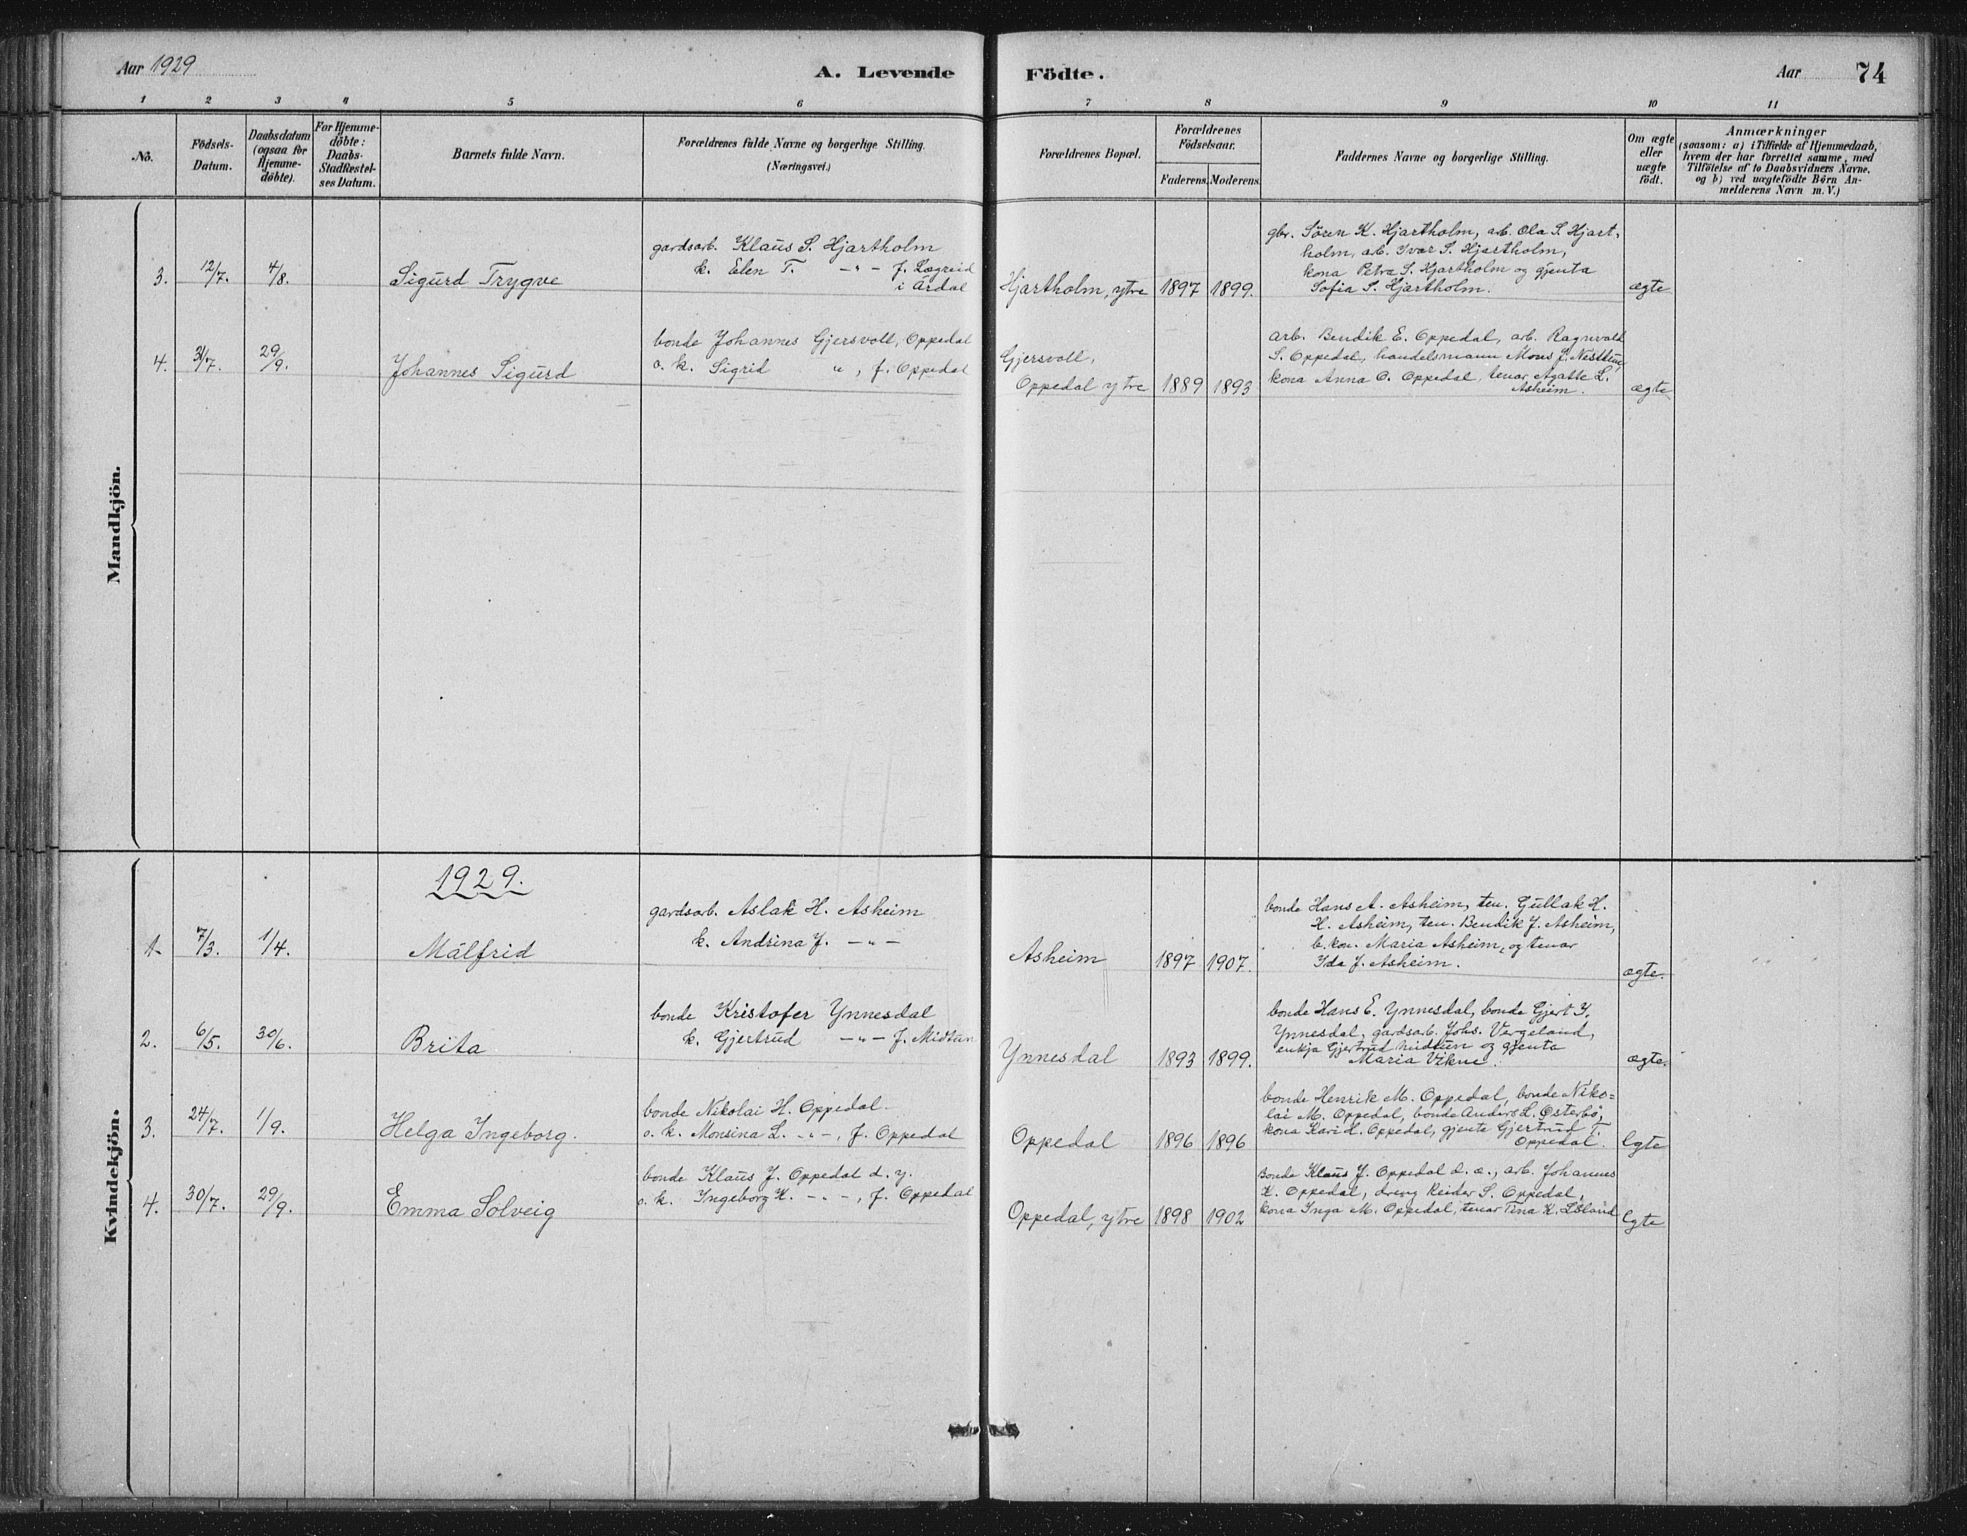 Aar 1929
A. Levende Födte.
Aar 74
1 2 3 4 5 6 7 8 9 10 11
No.
Födsels-
Datum.
Daabsdatum
(ogsaa for
Hjemme-
döbte).
For Hjemme-
döbte:
Daabs-
Stadfæstel-
ses Datum.
Barnets fulde Navn.
Forældrenes fulde Navne og borgerlige Stilling
(Næringsvei.)
Forældrenes Bopæl.
Forældrenes
Födselsaar.
Faderens. Moderens.
Faddernes Navne og borgerlige Stilling.
Om ægte
eller
uægte
födt.
Anmærkninger
(saasom: a) i Tilfælde af Hjemmedaab,
hvem der har forrettet samme, med
Tilföielse af to Daabsvidners Navne.
og b) ved uægtefödte Börn An-
melderens Navn m. V.)
Mandkjön.
3. 12/7. 4/8. Sigurd Trygve
gardsarb. Klaus S. Hjartholm
k. Elen T. -"- f. Lægreid
i Årdal
Hjartholm, ytre 1897 1899.
gbr. Sören K. Hjartholm, arb. Ola S. Hjart-
holm, arb. Ivar S. Hjartholm,
kona Petra S. Hjartholm og gjenta
Sofia S. Hjartholm.
ægte
4. 31/7. 29/9. Johannes Sigurd
bonde Johannes Gjersvoll, Oppedal
o. k. Sigrid ", f. Oppedal
Gjersvoll,
Oppedal ytre 1889 1893
arb. Bendik E. Oppedal, arb. Ragnvald
S. Oppedal, handelsmann Mons J. Nesttun,
kona Anna O. Oppedal, tenar Agatte L.
Asheim.
ægte
Kvindekjön.
1929.
1. 7/3. 1/4. Målfrid
gardsarb. Aslak H. Asheim
k. Andrina J. -"-
Asheim 1897 1907.
bonde Hans A. Asheim, ten. Gullak H.
H. Asheim, ten. Bendik J. Asheim,
b. kon. Maria Asheim, og tenar
Ida J. Asheim.
ægte.
2. 6/5. 30/6. Brita
bonde Kristofer Ynnesdal
k. Gjertrud -"- f. Midtun
Ynnesdal 1893 1899.
bonde Hans E. Ynnesdal, bonde Gjert I.
Ynnesdal, gardsarb. Johs. Vergeland,
enkja Gjertrud Midtun og gjenta
Maria Vikne.
ægte.
3. 24/7. 1/9. Helga Ingeborg.
bonde Nikolai H. Oppedal.
o. k. Monsina L. -"-, f. Oppedal
Oppedal 1896 1896
bonde Henrik M. Oppedal, bonde Niko-
lai M. Oppedal, bonde Anders L. Østerbö,
kona Kari L. Oppedal, gjente Gjertrud T.
Oppedal.
Egte
4. 30/7. 29/9. Emma Solveig
bonde Klaus J. Oppedal d. y.
o. k. Ingeborg K. -"-, f. Oppedal
Oppedal, ytre 1898 1902
Bonde Klaus J. Oppedal d. e., arb. Johannes
K. Oppedal, dreng Reidar S. Oppedal,
kona Inga M. Oppedal, tenar Tina K.
Egte